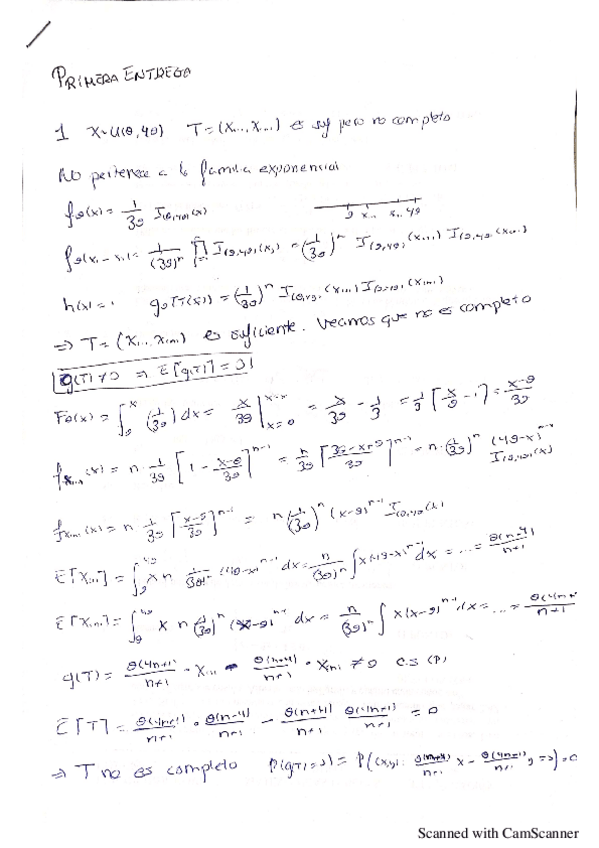 PRIMERA ENTREGA
1 X~U(θ,4θ) T=(X(1), X(n)) es suf pero no completo
No pertenece a la familia exponencial
fθ(x) = 1/3θ I(θ,4θ)(x)
θ x(1) x(n) 4θ
fθ(x1 - xn) = 1/(3θ)^n ∏ I(θ,4θ)(xi) = (1/3θ)^n I(θ,4θ)(x(1)) I(θ,4θ)(x(n))
h(x) = 1 gθ(T(x)) = (1/3θ)^n
⇒ T = (X(1), X(n)) es suficiente. Veamos que no es completo
g(T) ≠ 0 ⇒ E[g(T)] = 0
Fθ(x) = ∫ (1/3θ) dx = x/3θ = x/3θ - 1/3 = 1/3 [x/θ - 1] = x-θ/3θ
fx(1)(x) = n · 1/3θ [1 - x-θ/3θ]^n-1 = n/3θ [3θ-x+θ/3θ]^n-1 = n · (1/3θ)^n (4θ-x)^n-1 I(θ,4θ)(x)
fx(n)(x) = n 1/3θ [x-θ/3θ]^n-1 = n (1/3θ)^n (x-θ)^n-1 I(θ,4θ)(x)
E[X(1)] = ∫ x n 1/(3θ)^n (4θ-x)^n-1 dx = n/(3θ)^n ∫ x(4θ-x)^n-1 dx = ... = θ(n+4)/n+1
E[X(n)] = ∫ x n (1/3θ)^n (x-θ)^n-1 dx = n/(3θ)^n ∫ x(x-θ)^n-1 dx = ... = θ(4n+1)/n+1
g(T) = θ(4n+1)/n+1 · X(1) - θ(n+4)/n+1 · X(n) ≠ 0 c.s (P)
E[T] = θ(4n+1)/n+1 · θ(n+4)/n+1 - θ(n+4)/n+1 θ(4n+1)/n+1 = 0
⇒ T no es completo P(g(T) = 0) = P((x,y): θ(n+4)/n+1 x - θ(4n+1)/n+1 y = 0) = 0
Scanned with CamScanner